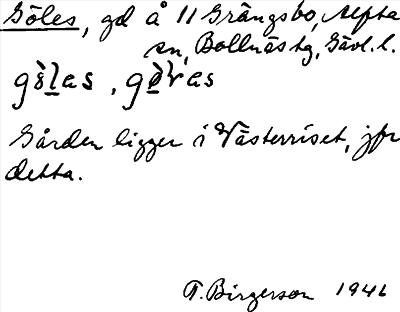 Göles, gd å 11 Grängsbo, Alfta
sn, Bollnäs tg, Gävl. l.
gö̀les, gö̀ras
Gården ligger i Västerriset, jfr
detta.
T. Birgerson 1946